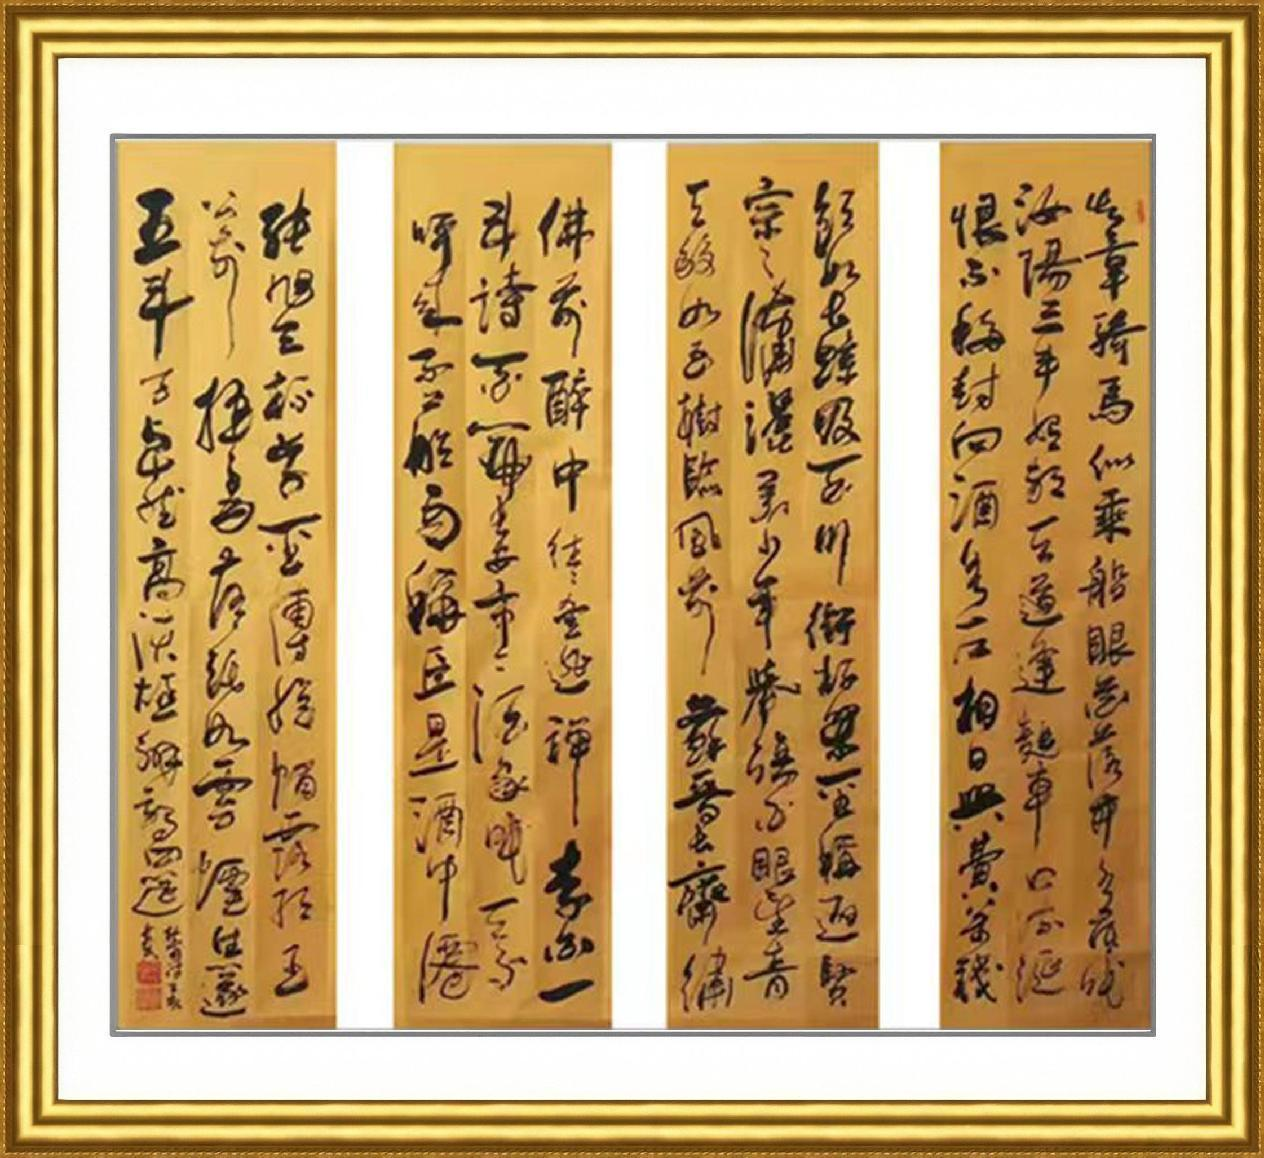 知章騎馬似乘船眼花落井水底眠
汝陽三斗始朝天道逢麴車口流涎
恨不移封向酒泉左相日興費萬錢
飲如長鯨吸百川銜杯樂聖稱避賢
宗之瀟灑美少年舉觴白眼望青
天皎如玉樹臨風前蘇晉長齋繡
佛前醉中往往愛逃禪李白一
斗詩百篇長安市上酒家眠天子
呼來不上船自稱臣是酒中僊
張旭三杯草聖傳脫帽露頂王
公前揮毫落紙如雲煙焦遂
五斗方卓然高談雄辯驚四筵